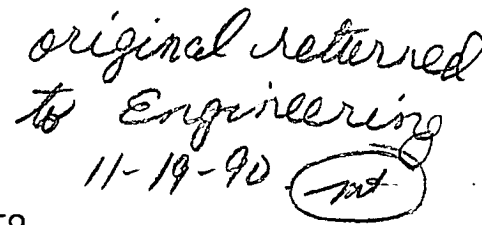 original returned
to Engineering
11-19-90 mt